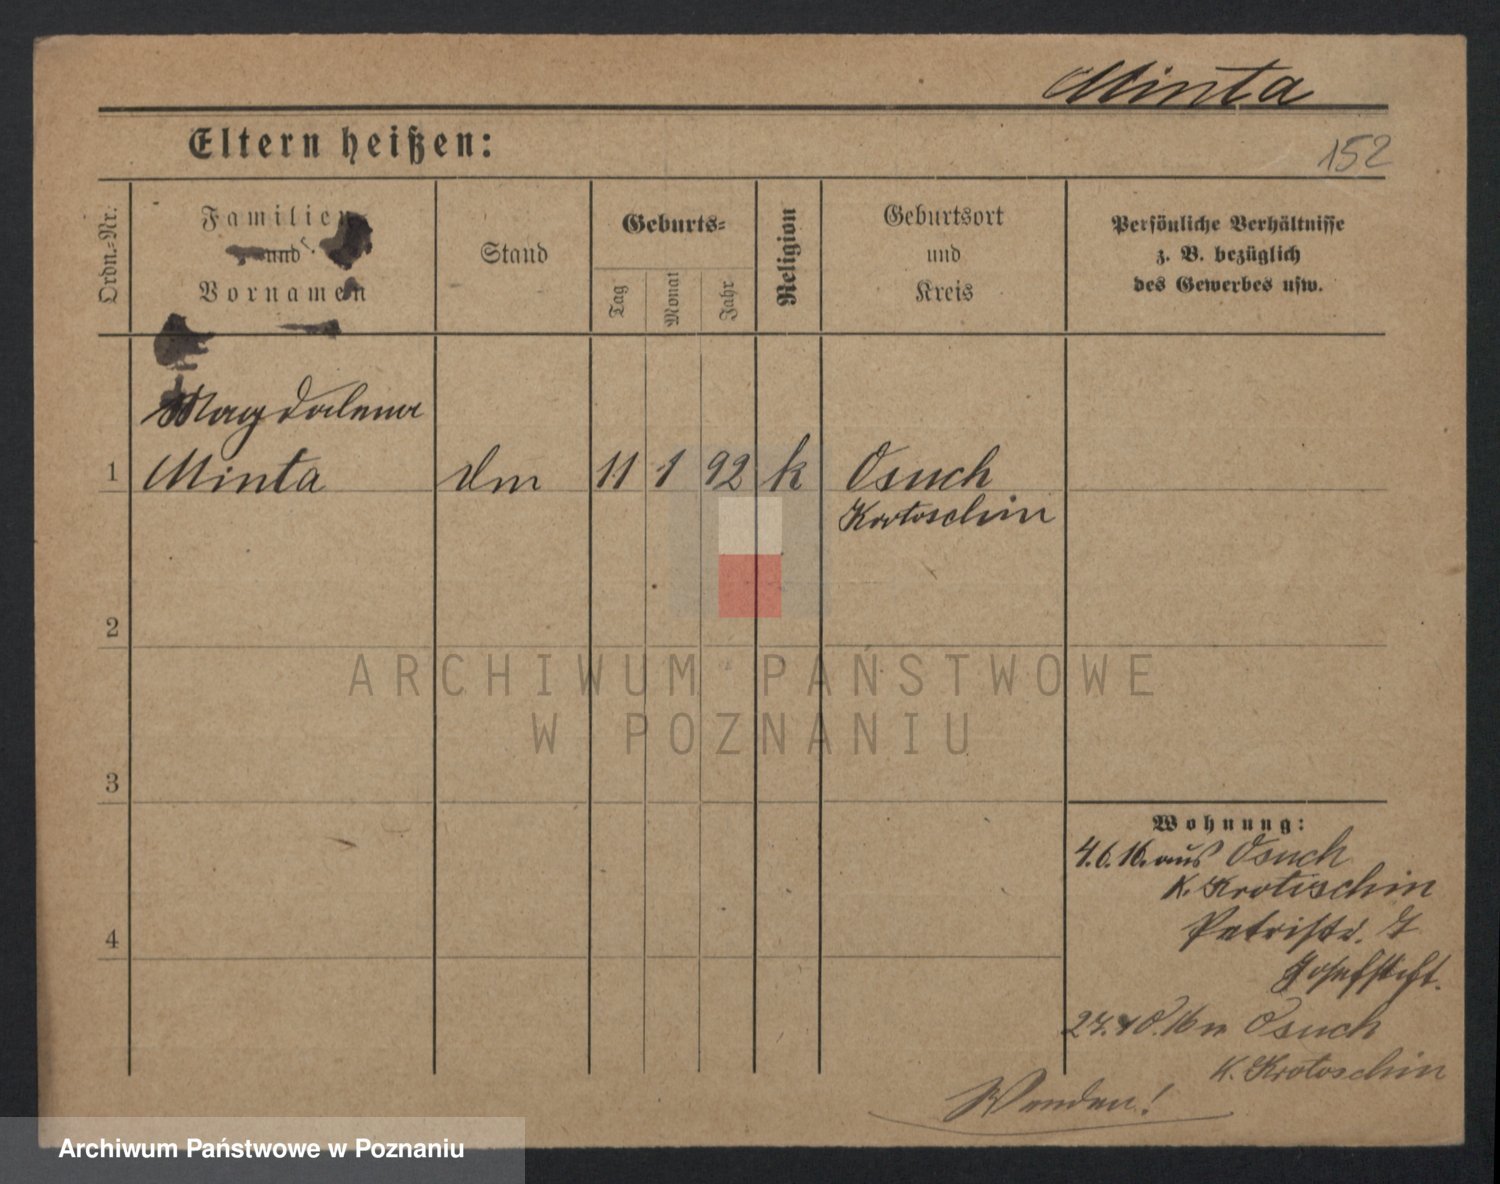 Minta
152
Eltern heißen:
Ordn.-Nr.
Familien-
und
Vornamen
Stand
Geburts-
Tag
Monat
Jahr
Religion
Geburtsort
und
Kreis
Persönliche Verhältnisse
z. B. bezüglich
des Gewerbes usw.
Magdalena
1 Minta dm 11 1 92 k Osuch
Krotoschin
2
ARCHIWUM PAŃSTWOWE
W POZNANIU
3
Wohnung:
4.6.16. aus Osuch
K. Krotoschin
Petristr. 7
Josefstift.
27. 16 n Osuch
4
K. Krotoschin
Wenden!
Archiwum Państwowe w Poznaniu